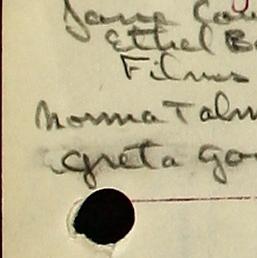 Jane Cow
Ethel B
Films
Norma Talm
Greta Ga